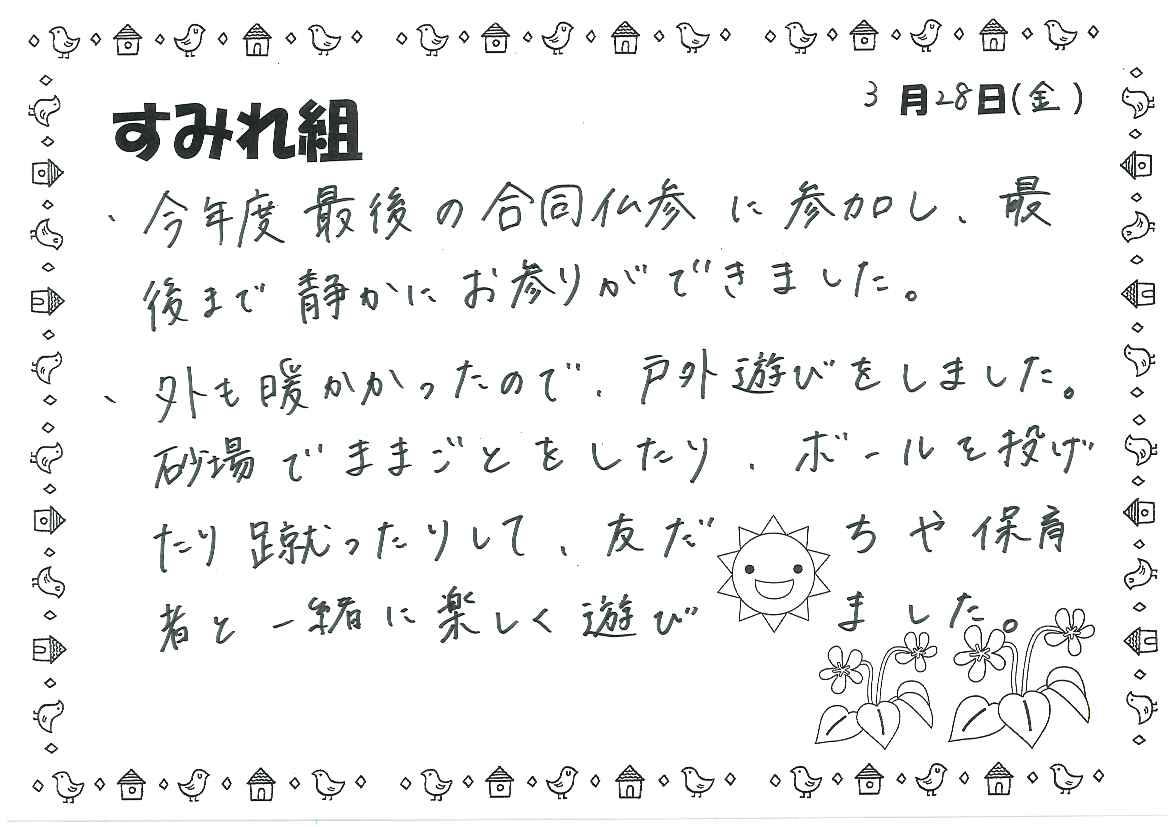 すみれ組
3月28日(金)
、今年度最後の合同仏参に参加し、最
後まで静かにお参りができました。
、外も暖かかったので、戸外遊びをしました。
砂場でままごとをしたり、ボールを投げ
たり蹴ったりして、友だちや保育
者と一緒に楽しく遊びました。